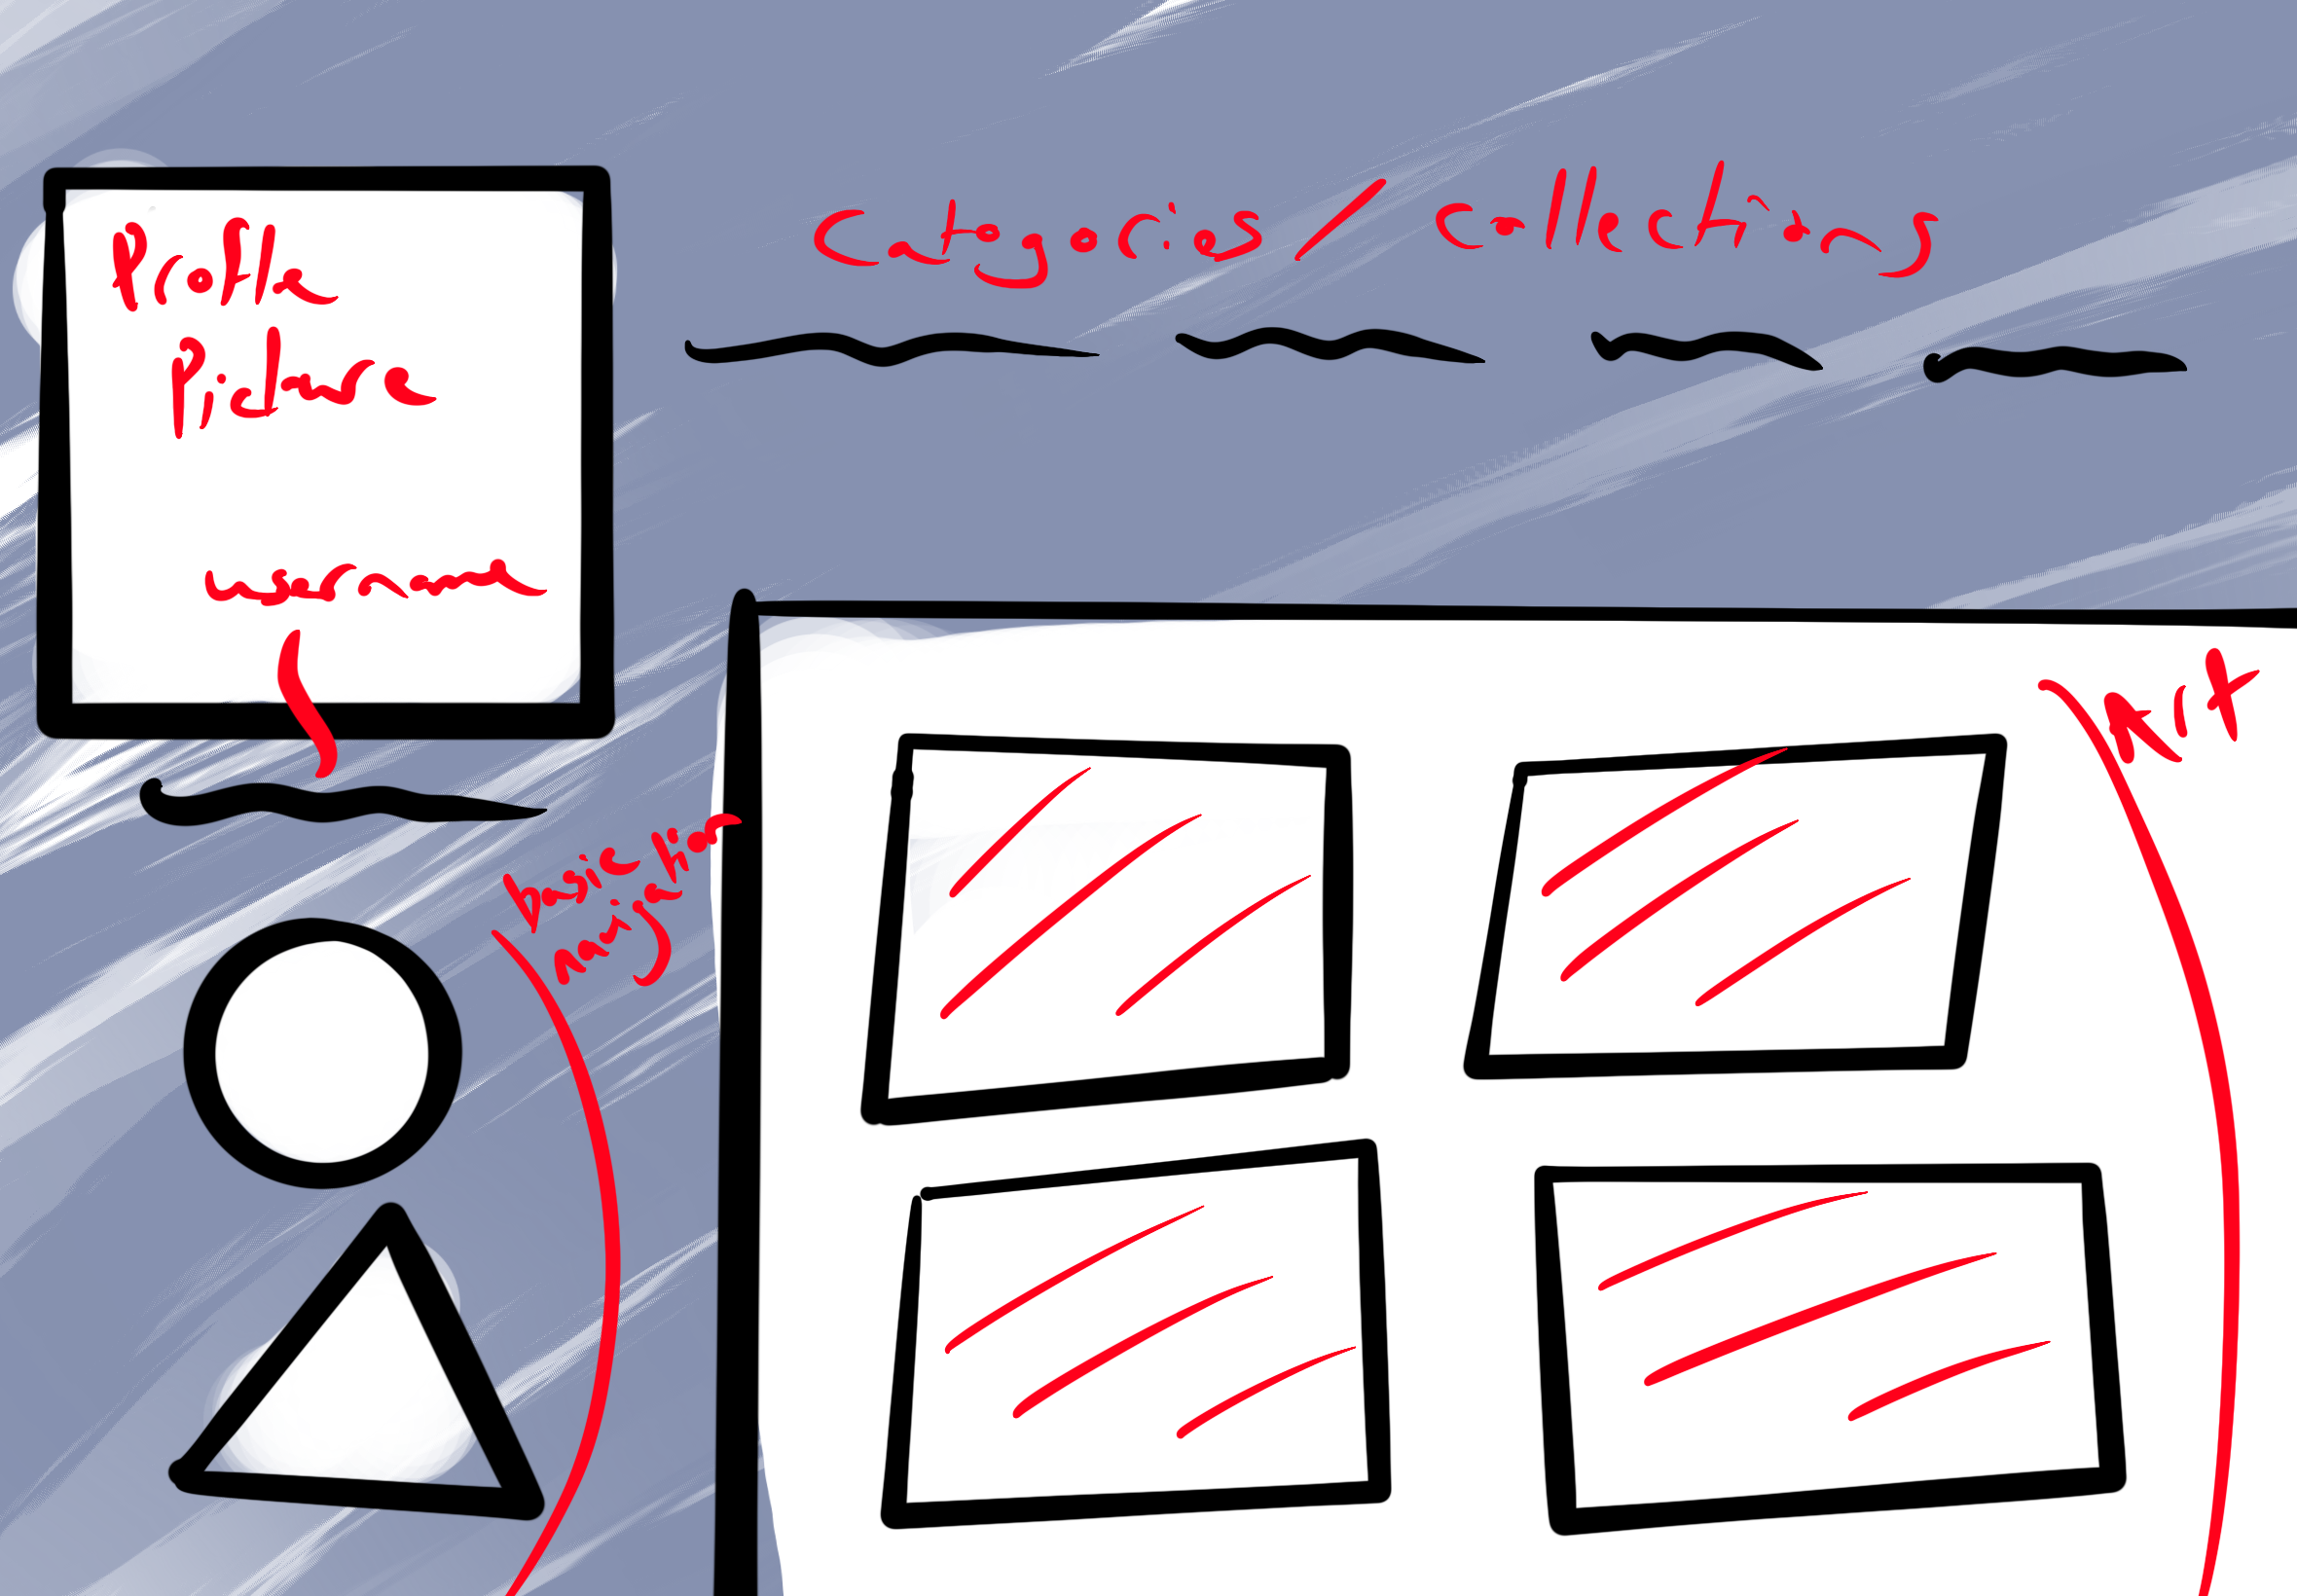 Profile
Picture
username
Categories/ Collections
basic
navigation
Art